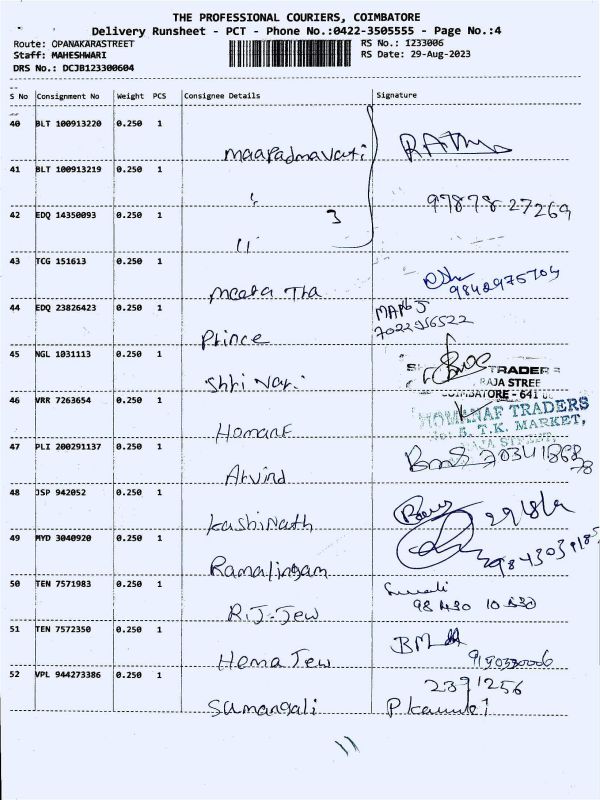 THE PROFESSIONAL COURIERS, COIMBATORE
Delivery Runsheet - PCT - Phone No.:0422-3505555 - Page No.:4
Route: OPANAKARASTREET RS No.: 1233006
Staff: MAHESHWARI RS Date: 29-Aug-2023
DRS No.: DCJB123300604
S No Consignment No Weight PCS Consignee Details Signature
40 BLT 100913220 0.250 1
maapadmavati
41 BLT 100913219 0.250 1
97878 27269
42 EDQ 14350093 0.250 1 3
43 TCG 151613 0.250 1
meeta Tha 9840975704
44 EDQ 23826423 0.250 1
Prince 7022956522
45 NGL 1031113 0.250 1
TRADER
RAJA STREE
Shri Nari COIMBATORE - 641
46 VRR 7263654 0.250 1
HOMANAF TRADERS
S.T.K. MARKET,
RAJA STREET,
47 PLI 200291137 0.250 1
Arvind
48 JSP 942052 0.250 1
Kashinath
49 MYD 3040920 0.250 1
Ramalingam
50 TEN 7571983 0.250 1
R.J-Jew
51 TEN 7572350 0.250 1
Hema Jew
52 VPL 944273386 0.250 1 2391256
Sumangali